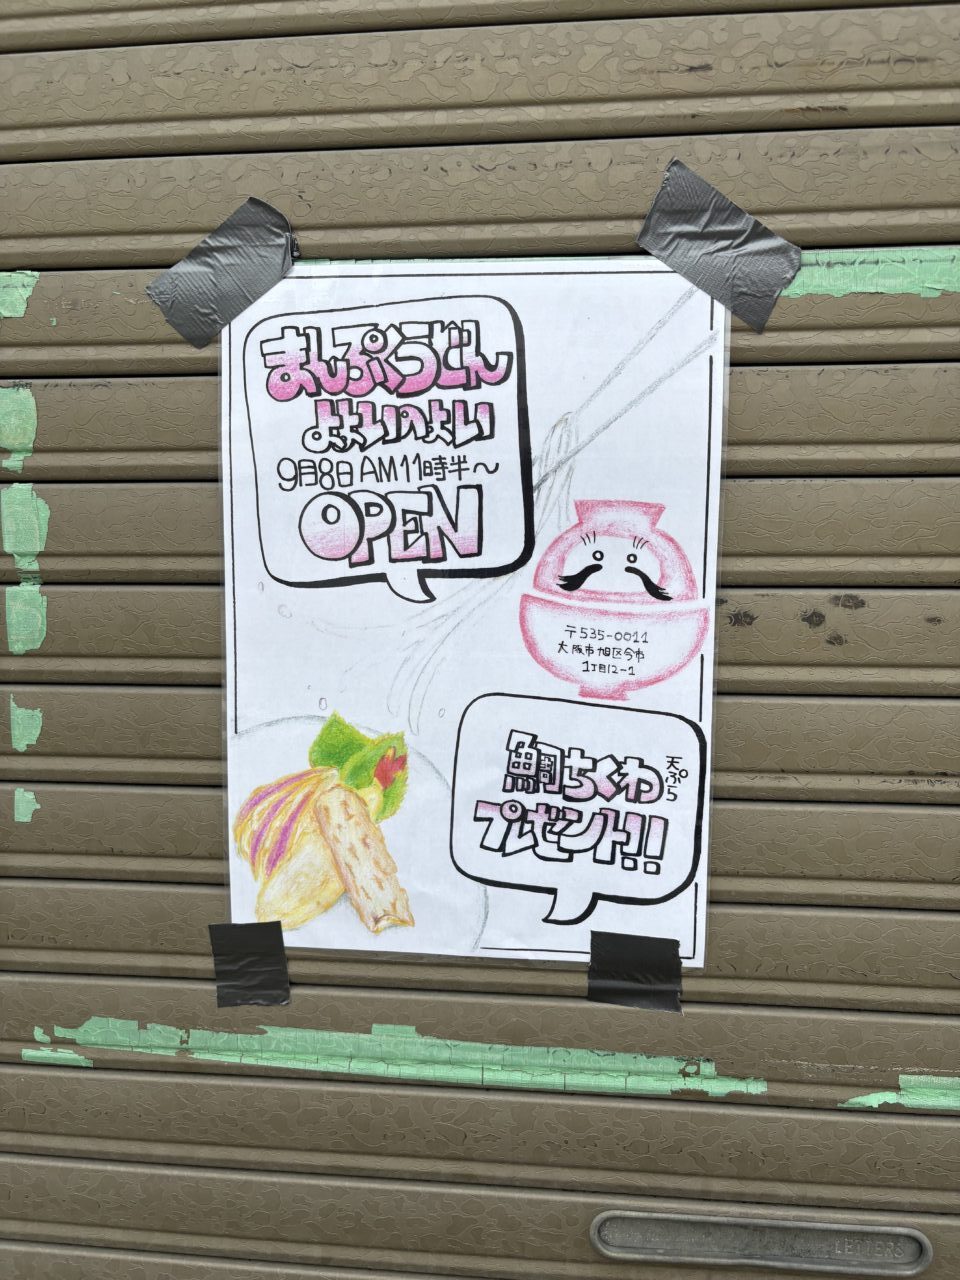 まんぷくうどん
よよいのよい
9月8日 AM11時半〜
OPEN
〒535-0011
大阪市旭区今市
1丁目12-1
鯛ちくわ天ぷら
プレゼント!!
LETTERS